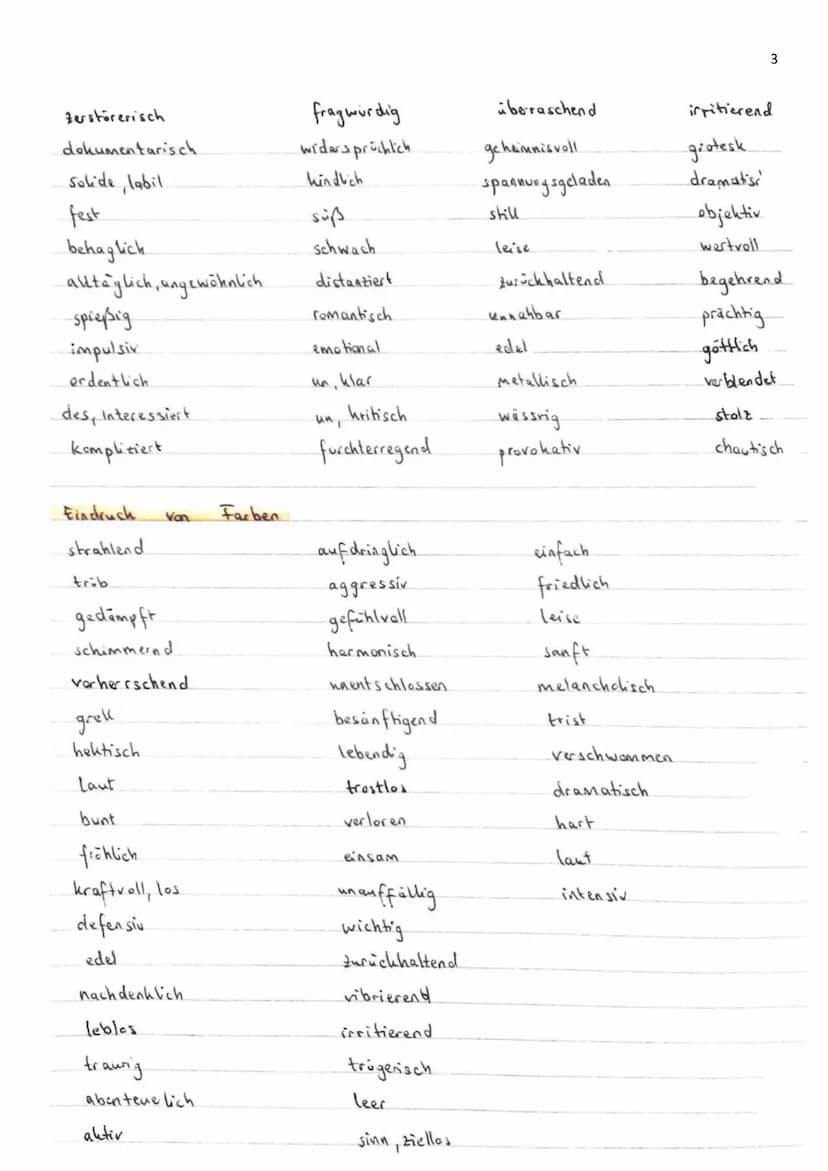 3
zerstörerisch fragwürdig überaschend irritierend
dokumentarisch widersprüchlich geheimnisvoll grotesk
solide, labil kindlich spannungsgeladen dramatisc
fest süß still objektiv
behaglich schwach leise wertvoll
alltäglich, ungewöhnlich distantiert zurückhaltend begehrend
spießig romantisch unnahbar prächtig
impulsiv emotional edel göttlich
ordentlich un, klar metallisch verblendet
des, Interessiert un, kritisch wässrig stolz
komplitiert furchterregend provokativ chaotisch
Eindruck von Farben
strahlend aufdringlich einfach
trüb aggressiv friedlich
gedämpft gefühlvoll leise
schimmernd harmonisch sanft
vorherrschend unentschlossen melancholisch
grell besänftigend trist
hektisch lebendig verschwommen
laut trostlos dramatisch
bunt verloren hart
fröhlich einsam laut
kraftvoll, los unauffällig intensiv
defensiv wichtig
edel zurückhaltend
nachdenklich vibrierend
leblos irritierend
traurig trügerisch
abenteuelich leer
aktiv sinn, ziellos